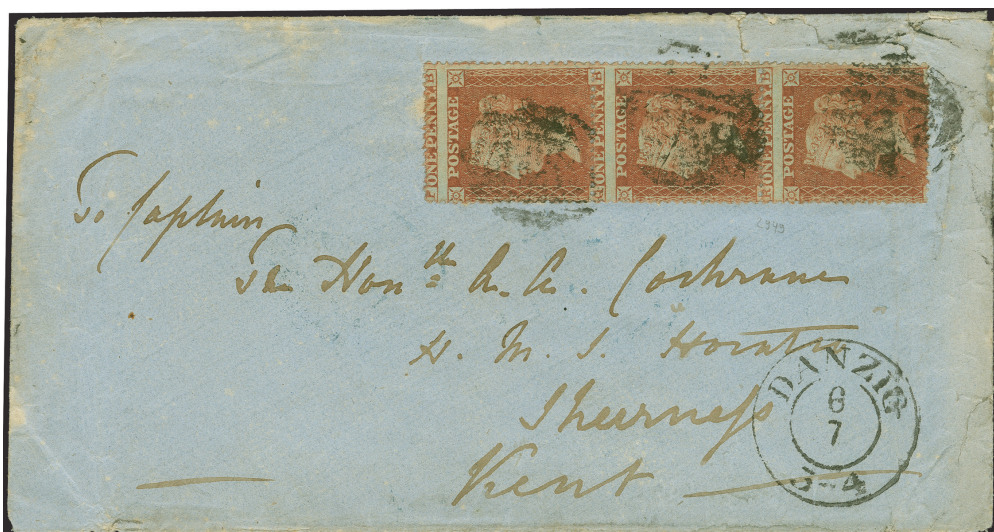 ONE PENNY. B POSTAGE ONE PENNY. B POSTAGE ONE PENNY. B POSTAGE
2949
To Captain
The Honble A. A. Cochrane
H. M. S. Horatio
Sheerness
Kent
DANZIG
6
7
3-4